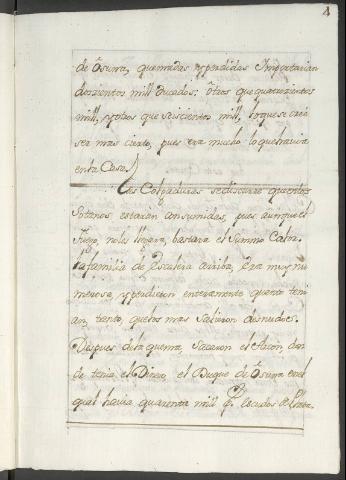 4
de Osuna, quemadas y perdidas Importarian
doszientos mill ducados: otros que quatrozientos
mill, y otros que seiscientos mill, lo que se creè
ser mas cierto, pues era mucho lo que havia
en la Casa.
Las Colgaduras se discurre que en los
Sotanos estaràn consumidas, pues aunque el
Fuego, no las llegara, bastara el Summo Calor.
La familia de Escalera arriba, era muy nu
merosa, y perdieron enteramente quanto tení
an, tanto, que los mas salieron desnudos.
Despues de la quema, sacaron el Arcòn, don
de tenia el Dinero, el Duque de Osuna en el
qual havia quarenta mill Escudos de Plata.